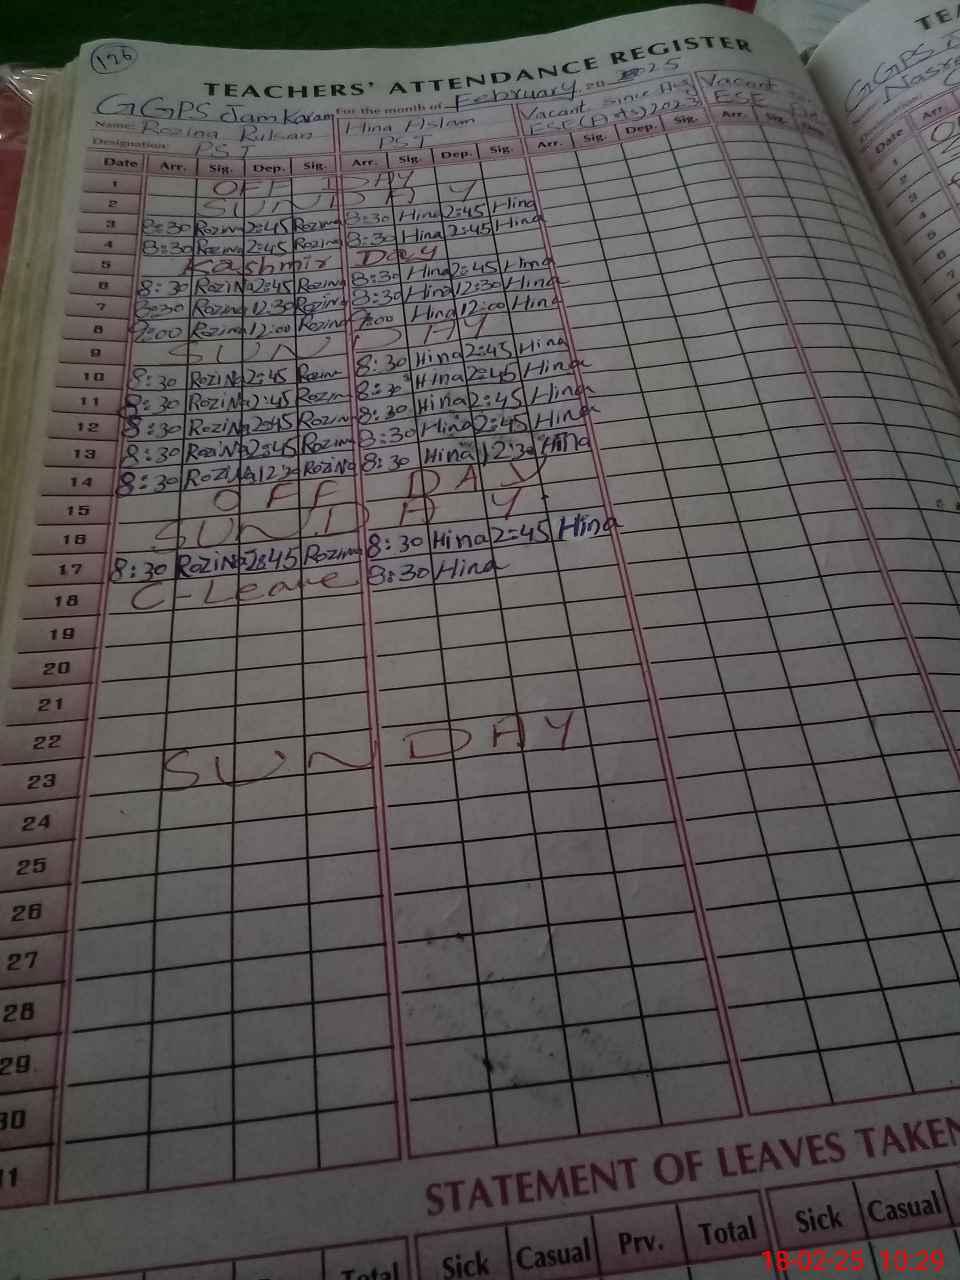 126
TEACHERS' ATTENDANCE REGISTER
GGPS Jam Karam For the month of February 20 25
Name: Rozina Hina Aslam Vacant Since Vacant
Designation: PST PST ESE (Arts) 2023 ESE
Date Arr. Sig. Dep. Sig. Arr. Sig. Dep. Sig. Arr. Sig. Dep. Sig. Arr. Sig.
1 OFF DAY
2 SUNDAY
3 8:30 Rozina 2:45 Rozina 8:30 Hina 2:45 Hina
4 8:30 Rozina 2:45 Rozina 8:30 Hina 2:45 Hina
5 Kashmir Day
6 8:30 RoziNa 2:45 Rozina 8:30 Hina 2:45 Hina
7 8:30 Rozina 12:30 Rozina 8:30 Hina 12:30 Hina
8 9:00 Rozina 12:00 Rozina 9:00 Hina 12:00 Hina
9 SUNDAY
10 8:30 RoziNa 2:45 Rozina 8:30 Hina 2:45 Hina
11 8:30 RoziNa 2:45 Rozina 8:30 Hina 2:45 Hina
12 8:30 RoziNa 2:45 Rozina 8:30 Hina 2:45 Hina
13 8:30 RoziNa 2:45 Rozina 8:30 Hina 2:45 Hina
14 8:30 RoziNa RoziNa 8:30 Hina 12:30 Hina
15 OFF DAY
16 SUNDAY
17 8:30 RoziNa 2:45 Rozina 8:30 Hina 2:45 Hina
18 C-Leave 8:30 Hina
19
20
21
22
23 SUNDAY
24
25
26
27
28
29
30
STATEMENT OF LEAVES TAKEN
Total Sick Casual Prv. Total Sick Casual
18-02-25 10:29